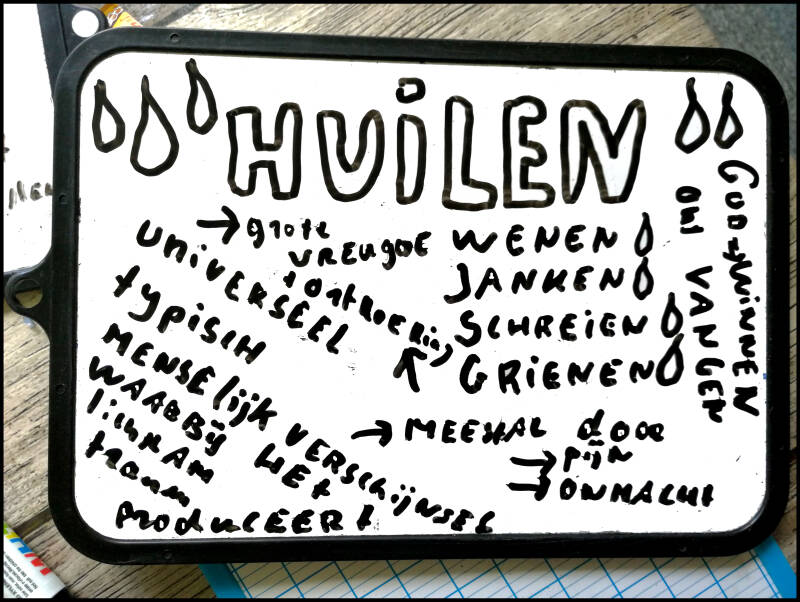 HUILEN
→ grote
VREUGDE
+ ONTROERING
UNIVERSEEL
TYPISCH
MENSELIJK VERSCHIJNSEL
WAARBIJ HET
lichAAM
tranen
PRODUCEERT
WENEN
JANKEN
SCHREIEN
GRIENEN
→ MEESTAL door
→ PIJN
→ ONMACHT
OM VANGEN